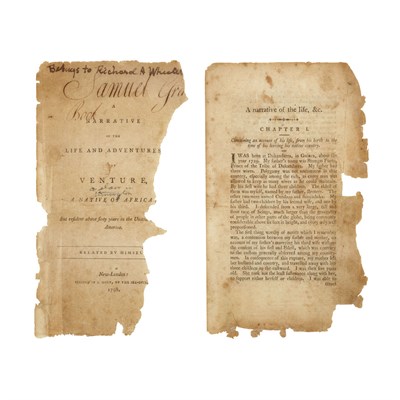 Belongs to Richard A Wheeler
Samuel Gra
A
NARRATIVE
OF THE
LIFE AND ADVENTURES
OF
VENTURE,
A NATIVE OF AFRICA
But resident above sixty years in the United
America.
RELATED BY HIMSEL
New-London:
1798.
A narrative of the life, &c.
CHAPTER I.
Containing an account of his life, from his birth to the
time of his leaving his native country.
I WAS born at Dukandarra, in Guinea, about the
year 1729. My father's name was Saungm Furro,
Prince of the Tribe of Dukandarra. My father had
three wives. Polygamy was not uncommon in that
country, especially among the rich, as every man was
allowed to keep as many wives as he could maintain.
By his first wife he had three children. The eldest of
them was myself, named by my father, Broteer. The
other two were named Cundazo and Soozaduka. My
father had two children by his second wife, and one by
his third. I descended from a very large, tall and
stout race of beings, much larger than the generality
of people in other parts of the globe, being commonly
considerable above six feet in height, and every way well
proportioned.
The first thing worthy of notice which I remember
was, a contention between my father and mother, on
account of my father's marrying his third wife without
the consent of his first and eldest, which was contrary
to the custom generally observed among my country-
men. In consequence of this rupture, my mother left
her husband and country, and travelled away with her
three children to the eastward. I was then five years
old. She took not the least sustenance along with her,
to support either herself or children. I was able to